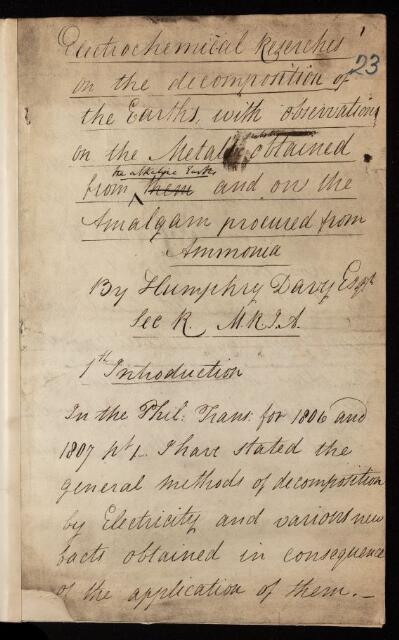 Electrochemical Reserches
23
on the decomposition of
the Earths, with observations
on the Metals obtained
the alkaline Earths
from them and on the
Amalgam procured from
Ammonia
By Humphry Davy Esqr
Sec R. M.R.I.A.
1th Introduction
In the Phil: Trans. for 1806 and
1807 I have stated the
general methods of decomposition
by Electricity and various new
facts obtained in consequence
of the application of them. —